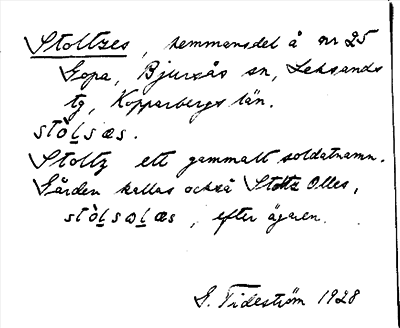 Stoltzes, hemmansdel å nr 25
Gopa, Bjursås sn, Leksands
tg, Kopparbergs län.
stòl̲sæs.
Stoltz ett gammalt soldatnamn.
Gården kallas också Stoltz Olles,
stòl̲sol̲æs, efter ägaren.
G. Tideström 1928